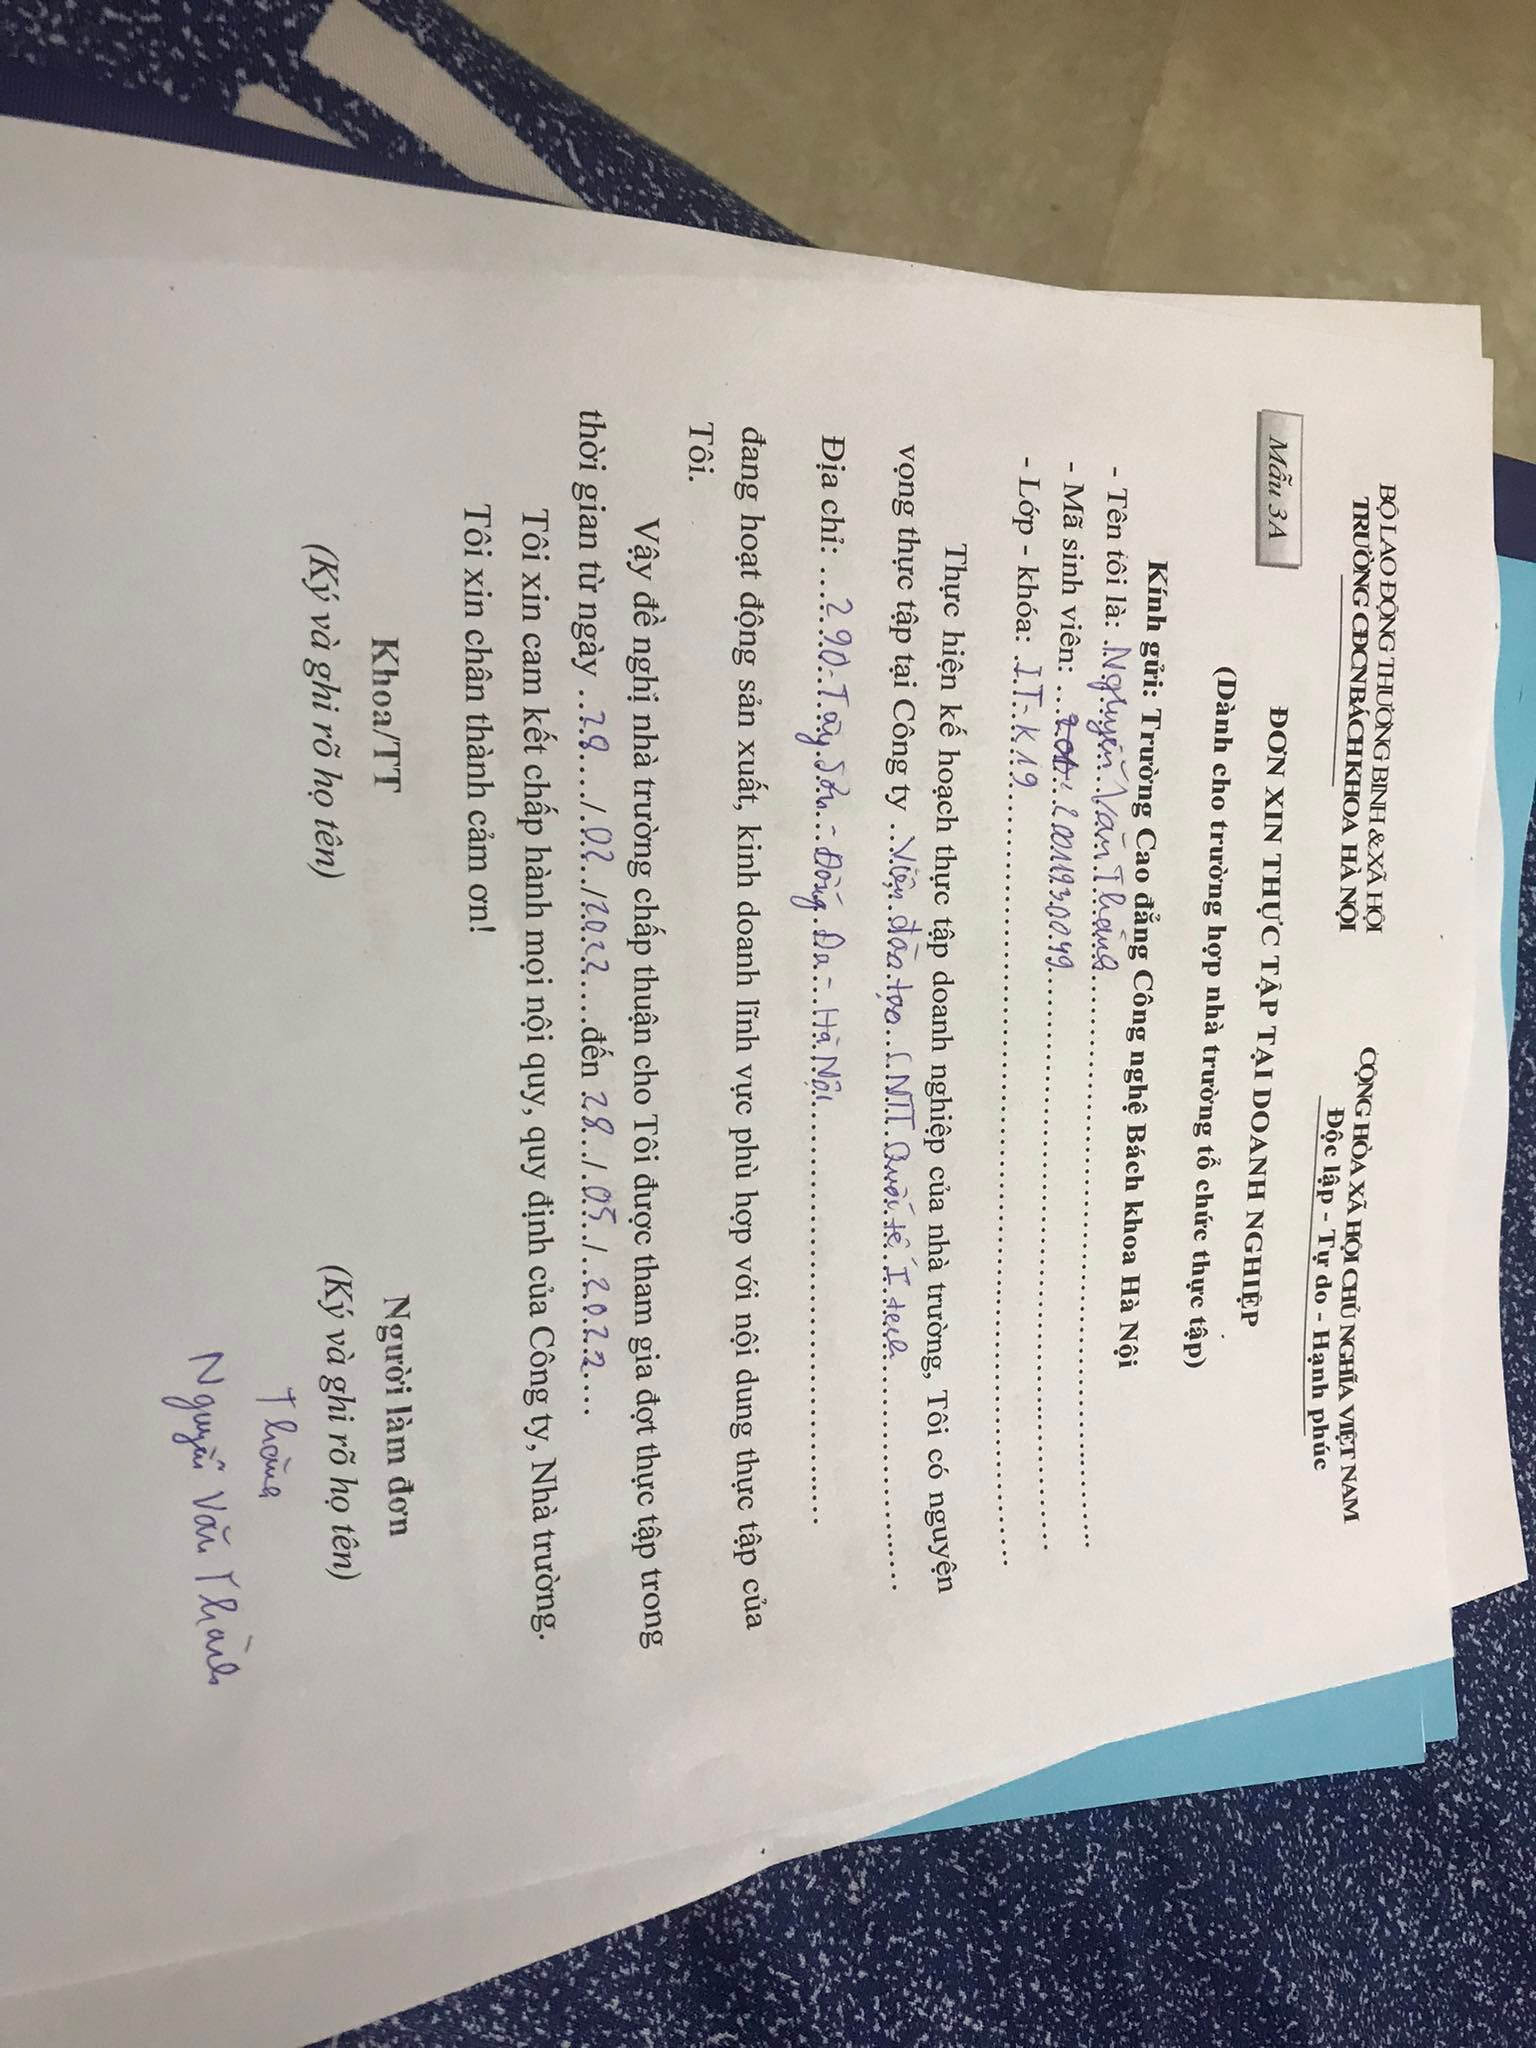 BỘ LAO ĐỘNG THƯƠNG BINH & XÃ HỘI
TRƯỜNG CĐCN BÁCH KHOA HÀ NỘI
CỘNG HÒA XÃ HỘI CHỦ NGHĨA VIỆT NAM
Độc lập - Tự do - Hạnh phúc
Mẫu 3A
ĐƠN XIN THỰC TẬP TẠI DOANH NGHIỆP
(Dành cho trường hợp nhà trường tổ chức thực tập)
Kính gửi: Trường Cao đẳng Công nghệ Bách khoa Hà Nội
- Tên tôi là: Nguyễn Văn Thành
- Mã sinh viên: 2001930049
- Lớp - khóa: IT-K19
Thực hiện kế hoạch thực tập doanh nghiệp của nhà trường, Tôi có nguyện
vọng thực tập tại Công ty Viện đào tạo CNTT Quốc tế Itech
Địa chỉ: 290-Tây Sơn-Đống Đa-Hà Nội
đang hoạt động sản xuất, kinh doanh lĩnh vực phù hợp với nội dung thực tập của
Tôi.
Vậy đề nghị nhà trường chấp thuận cho Tôi được tham gia đợt thực tập trong
thời gian từ ngày 28/02/2022 đến 28/05/2022
Tôi xin cam kết chấp hành mọi nội quy, quy định của Công ty, Nhà trường.
Tôi xin chân thành cảm ơn!
Khoa/TT
(Ký và ghi rõ họ tên)
Người làm đơn
(Ký và ghi rõ họ tên)
Thành
Nguyễn Văn Thành